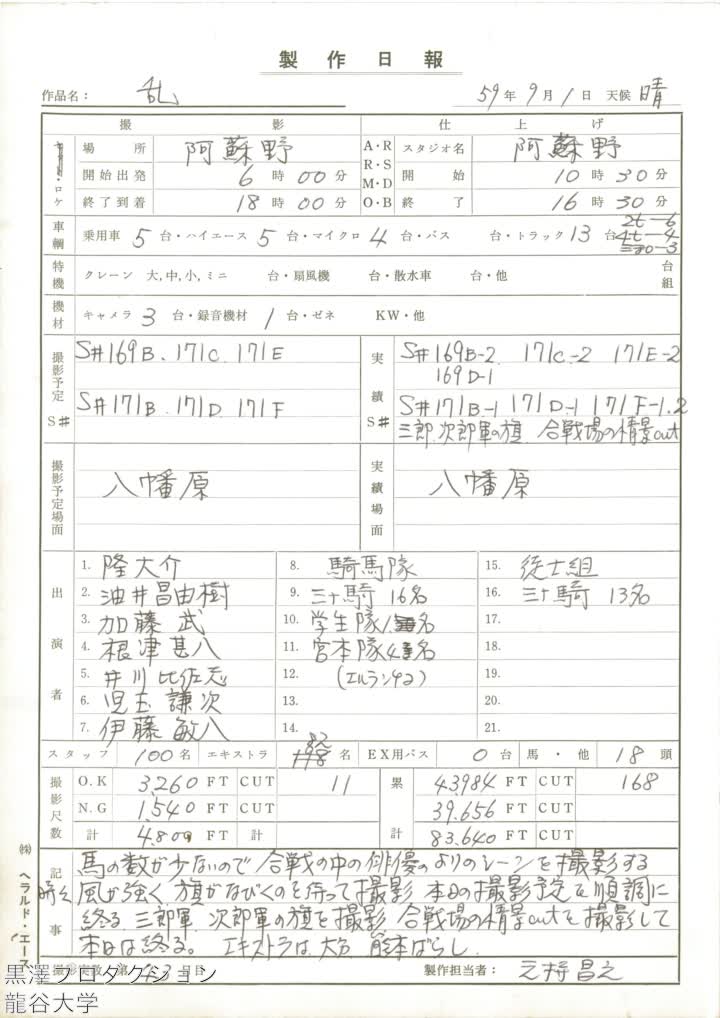 製作日報
作品名: 乱 59年9月1日 天候 晴
撮影 仕上げ
・ロケ 場所 阿蘇野 A・R R・S M・D O・B スタジオ名 阿蘇野
開始出発 6時00分 開始 10時30分
終了到着 18時00分 終了 16時30分
車輌 乗用車 5台・ハイエース 5台・マイクロ 4台・バス 台・トラック 13台 2t-6 4t-4
特機 クレーン 大,中,小,ミニ 台・扇風機 台・散水車 台・他 台組
機材 キャメラ 3台・録音機材 1台・ゼネ KW・他
撮影予定 S# S#169B. 171C. 171E 実績 S# S#169B-2 171C-2 171E-2
169D-1
S#171B. 171D. 171F S#171B-1 171D-1 171F-1.2
三郎.次郎軍の旗 合戦場の情景cut
撮影予定場面 八幡原 実績場面 八幡原
出演者
1. 隆大介 8. 騎馬隊 15. 徒士組
2. 油井昌由樹 9. 三十騎 16名 16. 三十騎 13名
3. 加藤 武 10. 学生隊 名 17.
4. 根津甚八 11. 宮本隊 名 18.
5. 井川比佐志 12. (エルランタ2) 19.
6. 児玉謙次 13. 20.
7. 伊藤敏八 14. 21.
スタッフ 100名 エキストラ 名 EX用バス 0台 馬・他 18頭
撮影尺数 O.K 3,260 FT CUT 11 累計 43,984 FT CUT 168
N.G 1,540 FT CUT 39,656 FT CUT
計 4,800 FT 計 83,640 FT CUT
記事 馬の数が少ないので 合戦の中の俳優のよりのシーンを撮影する
時々風が強く 旗がなびくのを待って撮影 本日の撮影予定を順調に
終る. 三郎軍 次郎軍の旗を撮影 合戦場の情景cutを撮影して
本日は終る。 エキストラは大方 熊本ばらし
撮影実数 第43日目 製作担当者:
㈱ヘラルド・エース
黒澤プロダクション
龍谷大学